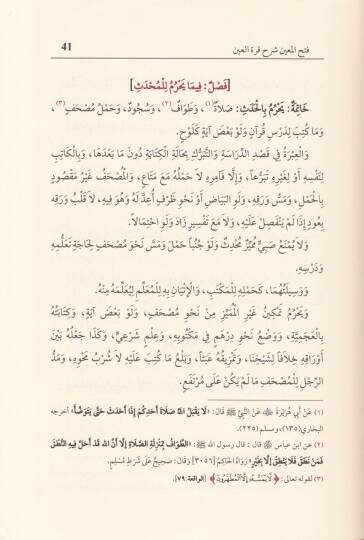 فتح المعين شرح قرة العين
41
[فَصْلٌ: فِيمَا يَحْرُمُ لِلْمُحْدَثِ]
خَاتِمَةٌ: يَحْرُمُ بِالْحَدَثِ: صَلَاةٌ(١)، وَطَوَافٌ(٢)، وَسُجُودٌ، وَحَمْلُ مُصْحَفٍ(٣)،
وَمَا كُتِبَ لِدَرْسِ قُرْآنٍ وَلَوْ بَعْضَ آيَةٍ كَلَوْحٍ.
وَالْعِبْرَةُ فِي قَصْدِ الدِّرَاسَةِ وَالتَّبَرُّكِ بِحَالَةِ الْكِتَابَةِ دُونَ مَا بَعْدَهَا، وَبِالْكَاتِبِ
لِنَفْسِهِ أَوْ لِغَيْرِهِ تَبَرُّعاً، وَإِلَّا فَآمِرِهِ لَا حَمْلُهُ مَعَ مَتَاعٍ، وَالْمُصْحَفُ غَيْرُ مَقْصُودٍ
بِالْحَمْلِ، وَمَسُّ وَرَقِهِ، وَلَوِ الْبَيَاضَ أَوْ نَحْوَ ظَرْفٍ أُعِدَّ لَهُ وَهُوَ فِيهِ، لَا قَلْبُ وَرَقِهِ
بِعُودٍ إِذَا لَمْ يَنْفَصِلْ عَلَيْهِ، وَلَا مَعَ تَفْسِيرٍ زَادَ وَلَوِ احْتِمَالاً.
وَلَا يُمْنَعُ صَبِيٌّ مُمَيِّزٌ مُحْدِثٌ وَلَوْ جُنُباً حَمْلَ وَمَسَّ نَحْوِ مُصْحَفٍ لِحَاجَةِ تَعَلُّمِهِ
وَدَرْسِهِ.
وَوَسِيلَتُهُمَا، كَحَمْلِهِ لِلْمَكْتَبِ، وَالْإِتْيَانِ بِهِ لِلْمُعَلِّمِ لِيُعَلِّمَهُ مِنْهُ.
وَيَحْرُمُ تَمْكِينُ غَيْرِ الْمُمَيِّزِ مِنْ نَحْوِ مُصْحَفٍ، وَلَوْ بَعْضَ آيَةٍ، وَكِتَابَتُهُ
بِالْعَجَمِيَّةِ، وَوَضْعُ نَحْوِ دِرْهَمٍ فِي مَكْتُوبِهِ، وَعِلْمٍ شَرْعِيٍّ، وَكَذَا جَعْلُهُ بَيْنَ
أَوْرَاقِهِ خِلَافاً لِشَيْخِنَا، وَتَمْزِيقُهُ عَبَثاً، وَبَلْعُ مَا كُتِبَ عَلَيْهِ لَا شُرْبُ مَحْوِهِ، وَمَدُّ
الرِّجْلِ لِلْمُصْحَفِ مَا لَمْ يَكُنْ عَلَى مُرْتَفِعٍ.
(١) عَنْ أَبِي هُرَيْرَةَ عَنْ النَّبِيِّ ﷺ قال: «لَا يَقْبَلُ اللهُ صَلَاةَ أَحَدِكُمْ إِذَا أَحْدَثَ حَتَّى يَتَوَضَّأَ» أخرجه
البخاري(١٣٥)، ومسلم(٢٢٥).
(٢) عن ابن عباس قال: قال رسول الله ﷺ: «الطَّوَافُ بِمَنْزِلَةِ الصَّلَاةِ إِلَّا أَنَّ اللهَ قَدْ أَحَلَّ فِيهِ النُّطْقَ
فَمَنْ نَطَقَ فَلَا يَنْطِقْ إِلَّا بِخَيْرٍ» رَوَاهُ الحَاكِمُ [٣٠٥٦] وَقَالَ: صَحِيحٌ عَلَى شَرْطِ مُسْلِمٍ.
(٣) لقوله تعالى: ﴿لَا يَمَسُّهُ إِلَّا الْمُطَهَّرُونَ﴾ [الواقعة:٧٩].